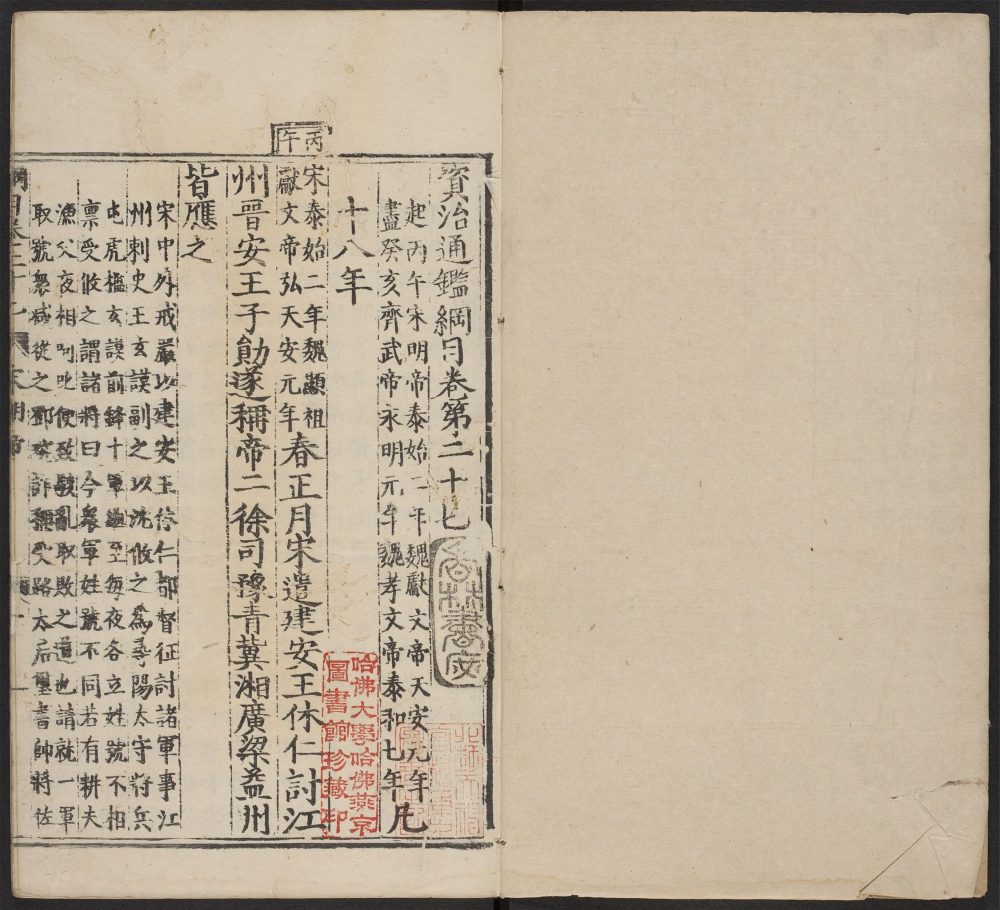 資治通鑑綱目卷第二十七
起丙午宋明帝泰始二年魏獻文帝天安元年
盡癸亥齊武帝永明元年魏孝文帝泰和七年凡
十八年
哈佛大學哈佛燕京
圖書館珍藏印
丙午
宋泰始二年魏顯祖
獻文帝弘天安元年春正月宋遣建安王休仁討江
州晉安王子勛遂稱帝二徐司豫青冀湘廣梁益州
皆應之
宋中外戒嚴以建安王休仁都督征討諸軍事江
州刺史王玄謨副之以沈攸之為尋陽太守將兵
屯虎檻玄謨前鋒十軍繼至每夜各立姓號不相
禀受攸之謂諸將曰今衆軍姓號不同若有耕夫
漁父夜相呵叱便致駭亂取敗之道也請就一軍
取號衆咸從之鄧琬詐稱受路太后璽書帥將佐
綱目卷二十七 宋明帝 一